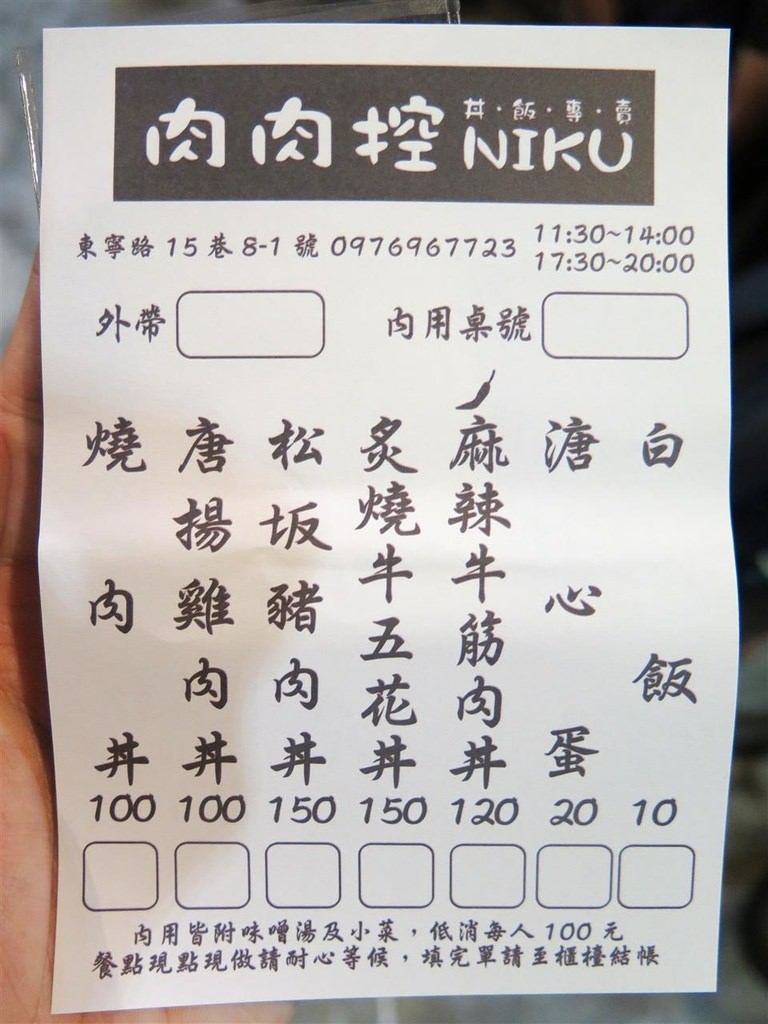 肉肉控 丼·飯·專·賣 NIKU
東寧路 15 巷 8-1 號 0976967723 11:30~14:00
17:30~20:00
外帶 內用桌號
燒肉丼 100
唐揚雞肉丼 100
松坂豬肉丼 150
炙燒牛五花丼 150
麻辣牛筋肉丼 120
溏心蛋 20
白飯 10
內用皆附味噌湯及小菜，低消每人 100 元
餐點現點現做請耐心等候，填完單請至櫃檯結帳